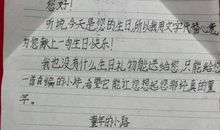 您好!
听说,今天是您的生日,所以我用文字代替心意
为您献上一句生日快乐!
我也没有什么生日礼物能送给您,只能给您
一首自编的小诗,希望它能让您想起您那纯真的童
年。
童年的小路